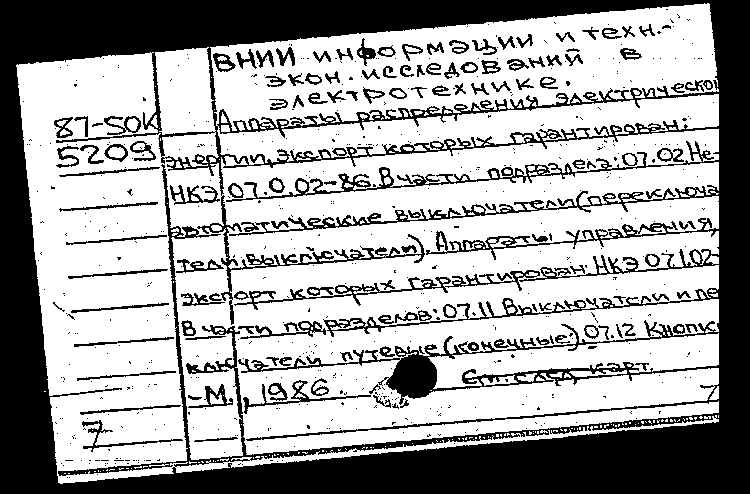 ВНИИ информации и техн.-
экон. исследований в
электротехнике.
87-50К
Аппараты распределения электрической
5209
энергии, экспорт которых гарантирован:
НКЭ 07.0.02-86. В части подраздела: 07.02 Не-
автоматические выключатели (переключа
тели, выключатели). Аппараты управления,
экспорт которых гарантирован: НКЭ 07.1.02-
В части подразделов: 07.11 Выключатели и пе
ключатели путевые (конечные). 07.12 Кнопк
-М., 1986.
См. след. карт.
7
7